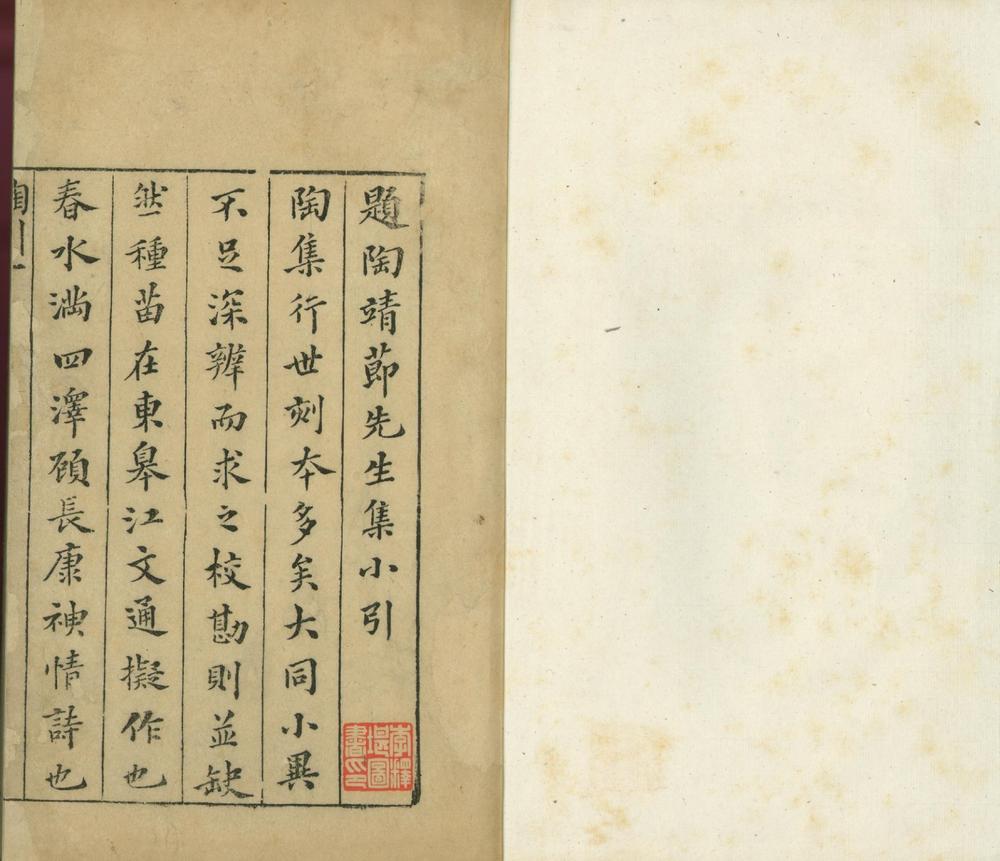 題陶靖節先生集小引
陶集行世刻本多矣大同小異
不足深辨而求之校勘則並缺
然種苗在東皐江文通擬作也
春水満四澤顧長康神情詩也
陶引
一
李澤
堪圖
書印